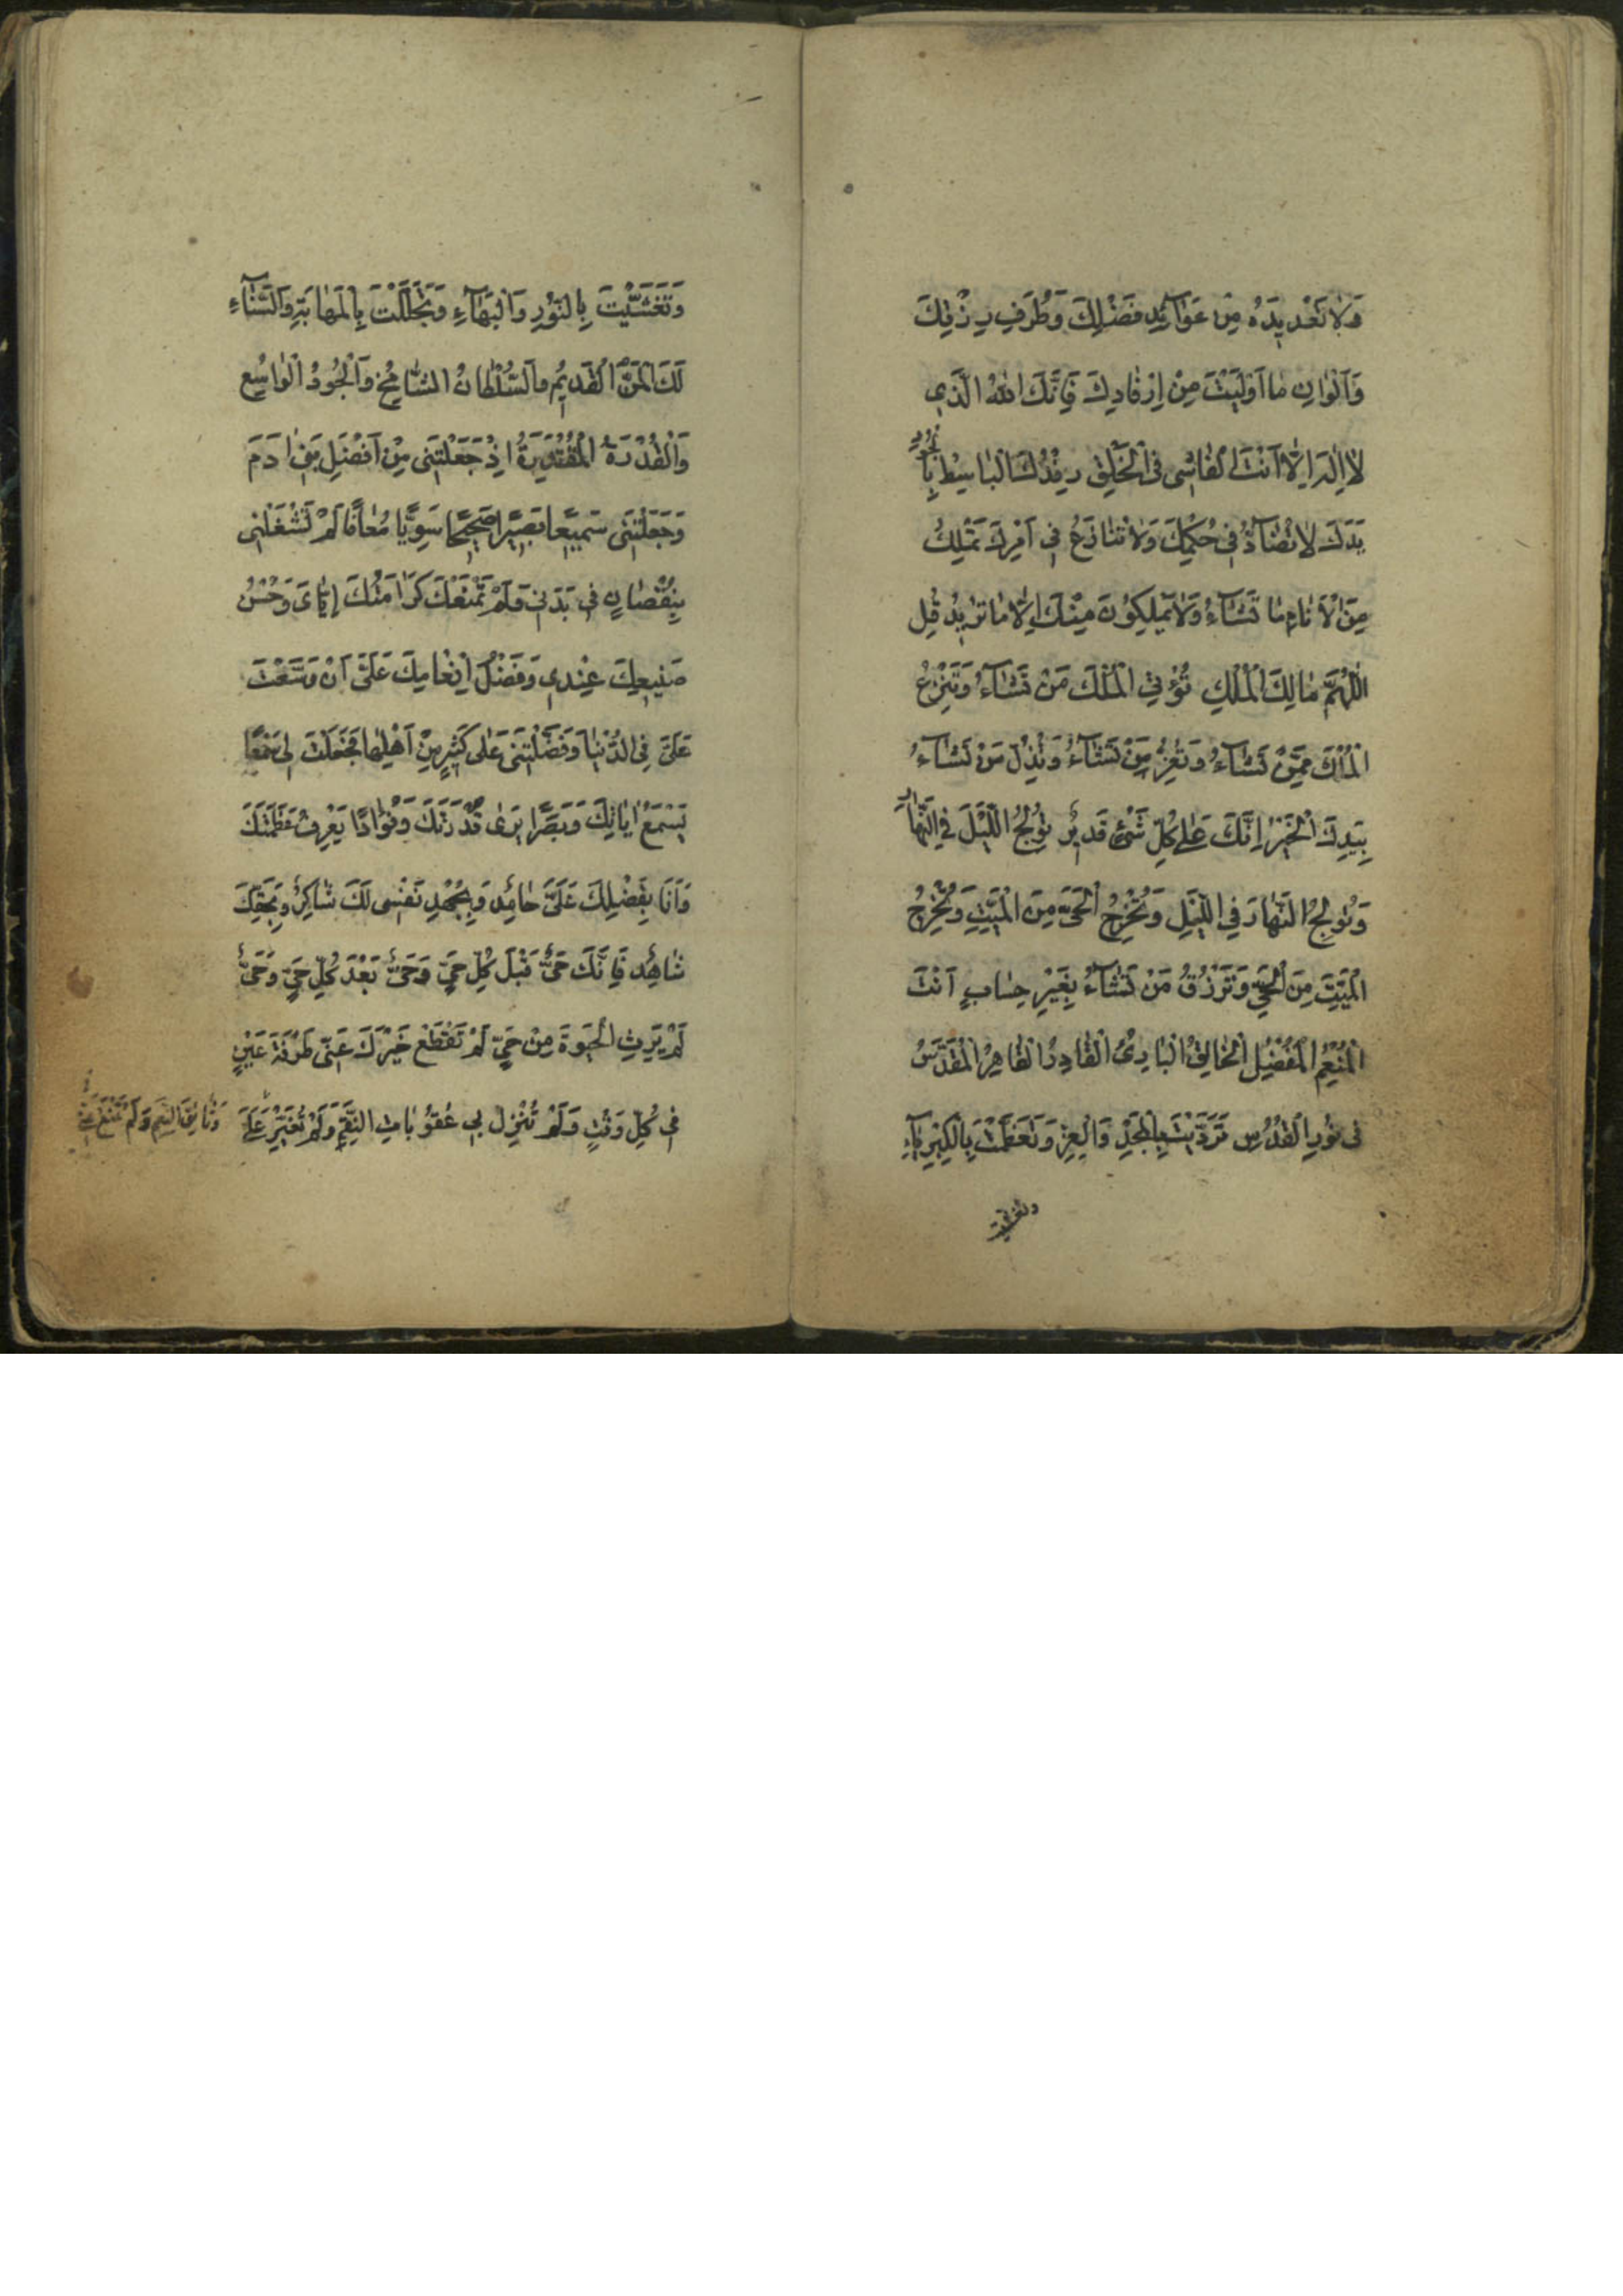 وَلَا تَعْدِيدَهُ مِنْ عَوَآئِدِ فَضْلِكَ وَطُرَفِ رِزْقِكَ
وَاَلْوَانِ مَا اَوْلَيْتَ مِنْ اِرْفَادِكَ فَاِنَّكَ اللهُ الَّذِي
لَا اِلٰهَ اِلَّا اَنْتَ الْفَاشِي فِي الْخَلْقِ رِفْدُكَ الْبَاسِطُ بِالْجُودِ
يَدَكَ لَا تُضَآدُّ فِي حُكْمِكَ وَلَا تُنَازَعُ فِي اَمْرِكَ تَمْلِكُ
مِنَ الْاَنَامِ مَا تَشَآءُ وَلَا يَمْلِكُونَ مِنْكَ اِلَّا مَا تُرِيدُ قُلِ
اللّٰهُمَّ مَالِكَ الْمُلْكِ تُؤْتِي الْمُلْكَ مَنْ تَشَآءُ وَتَنْزِعُ
الْمُلْكَ مِمَّنْ تَشَآءُ وَتُعِزُّ مَنْ تَشَآءُ وَتُذِلُّ مَنْ تَشَآءُ
بِيَدِكَ الْخَيْرُ اِنَّكَ عَلٰى كُلِّ شَيْءٍ قَدِيرٌ تُولِجُ اللَّيْلَ فِي النَّهَارِ
وَتُولِجُ النَّهَارَ فِي اللَّيْلِ وَتُخْرِجُ الْحَيَّ مِنَ الْمَيِّتِ وَتُخْرِجُ
الْمَيِّتَ مِنَ الْحَيِّ وَتَرْزُقُ مَنْ تَشَآءُ بِغَيْرِ حِسَابٍ اَنْتَ
الْمُنْعِمُ الْمُفْضِلُ الْخَالِقُ الْبَارِئُ الْقَادِرُ الْقَاهِرُ الْمُقَدَّسُ
فِي نُورِ الْقُدْسِ تَرَدَّيْتَ بِالْمَجْدِ وَالْعِزِّ وَتَعَظَّمْتَ بِالْكِبْرِيَآءِ
وتغشيت
وَتَغَشَّيْتَ بِالنُّورِ وَالْبَهَآءِ وَتَجَلَّلْتَ بِالْمَهَابَةِ وَالسَّنَآءِ
لَكَ الْمَنُّ الْقَدِيمُ وَالسُّلْطَانُ الشَّامِخُ وَالْجُودُ الْوَاسِعُ
وَالْقُدْرَةُ الْمُقْتَدِرَةُ اِذْ جَعَلْتَنِي مِنْ اَفْضَلِ بَنِي اٰدَمَ
وَجَعَلْتَنِي سَمِيعًا بَصِيرًا صَحِيحًا سَوِيًّا مُعَافًا لَمْ تَشْغَلْنِي
بِنُقْصَانٍ فِي بَدَنِي وَلَمْ تَمْنَعْكَ كَرَامَتُكَ اِيَّايَ وَحُسْنُ
صَنِيعِكَ عِنْدِي وَفَضْلُ اِنْعَامِكَ عَلَيَّ اَنْ وَسَّعْتَ
عَلَيَّ فِي الدُّنْيَا وَفَضَّلْتَنِي عَلٰى كَثِيرٍ مِنْ اَهْلِهَا فَجَعَلْتَ لِي سَمْعًا
يَسْمَعُ اٰيَاتِكَ وَبَصَرًا يَرٰى قُدْرَتَكَ وَفُؤَادًا يَعْرِفُ عَظَمَتَكَ
وَاَنَا بِفَضْلِكَ عَلَيَّ حَامِدٌ وَبِجُهْدِ نَفْسِي لَكَ شَاكِرٌ وَبِحَقِّكَ
شَاهِدٌ فَاِنَّكَ حَيٌّ قَبْلَ كُلِّ حَيٍّ وَحَيٌّ بَعْدَ كُلِّ حَيٍّ وَحَيٌّ
لَمْ يَرِثِ الْحَيٰوةَ مِنْ حَيٍّ لَمْ تَقْطَعْ خَيْرَكَ عَنِّي طَرْفَةَ عَيْنٍ
فِي كُلِّ وَقْتٍ وَلَمْ تُنْزِلْ بِي عُقُوبَاتِ النِّقَمِ وَلَمْ تُغَيِّرْ عَلَيَّ
وَثَائِقَ النِّعَمِ وَلَمْ تَمْنَعْ عَنِّي